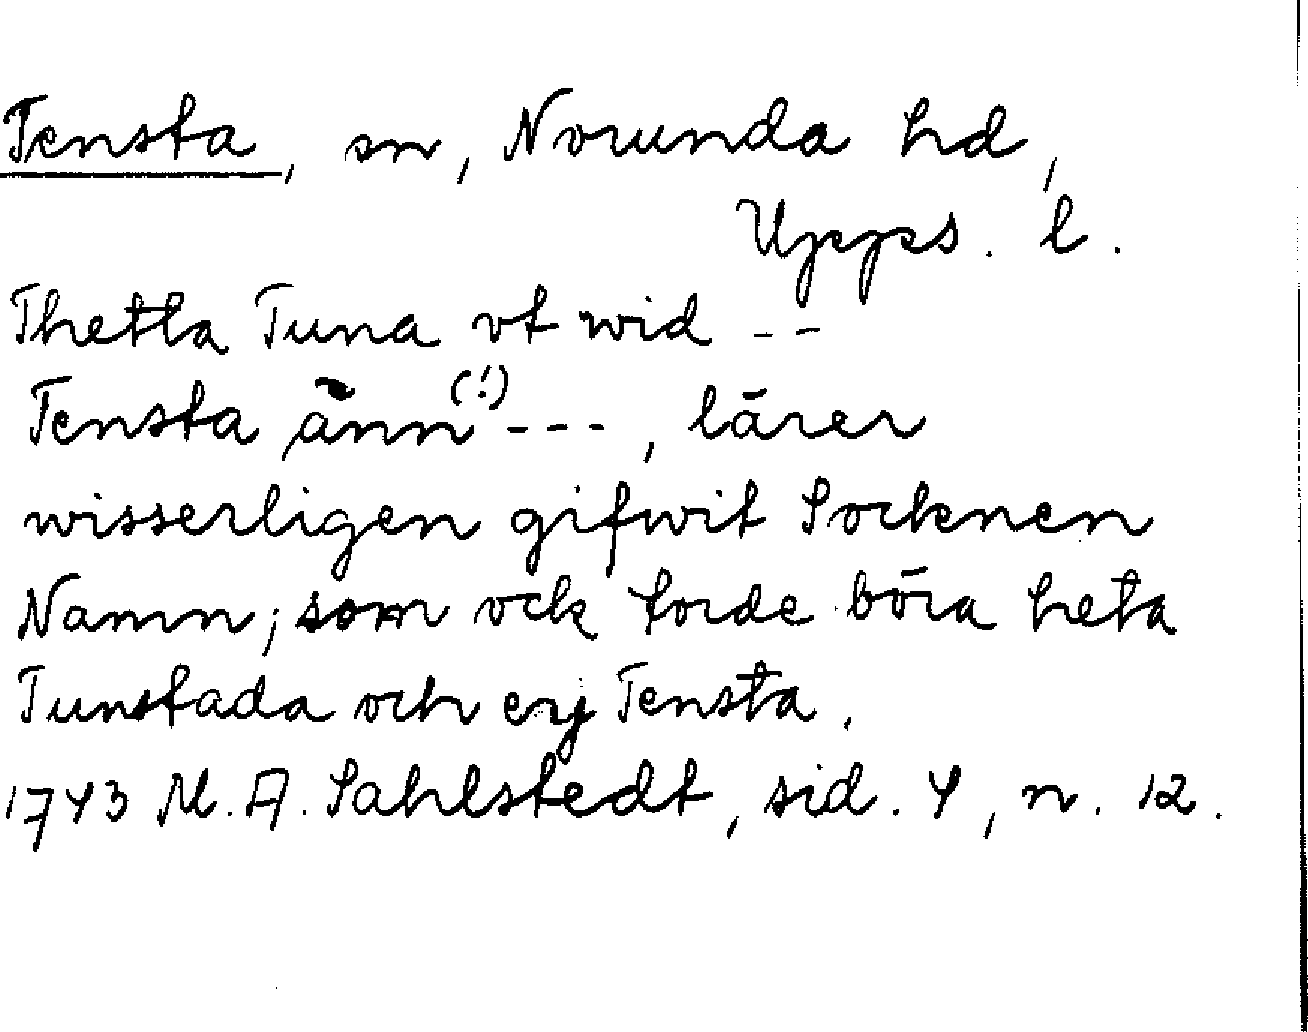 Tensta, sn, Norunda hd,
Upps. l.
Thetta Tuna vt wid --
Tensta änn(!) ---, lärer
wisserligen gifwit Socknen
Namn; som ock torde böra heta
Tunstada och ey Tensta.
1743 M. A. Sahlstedt, sid. 4, n. 12.